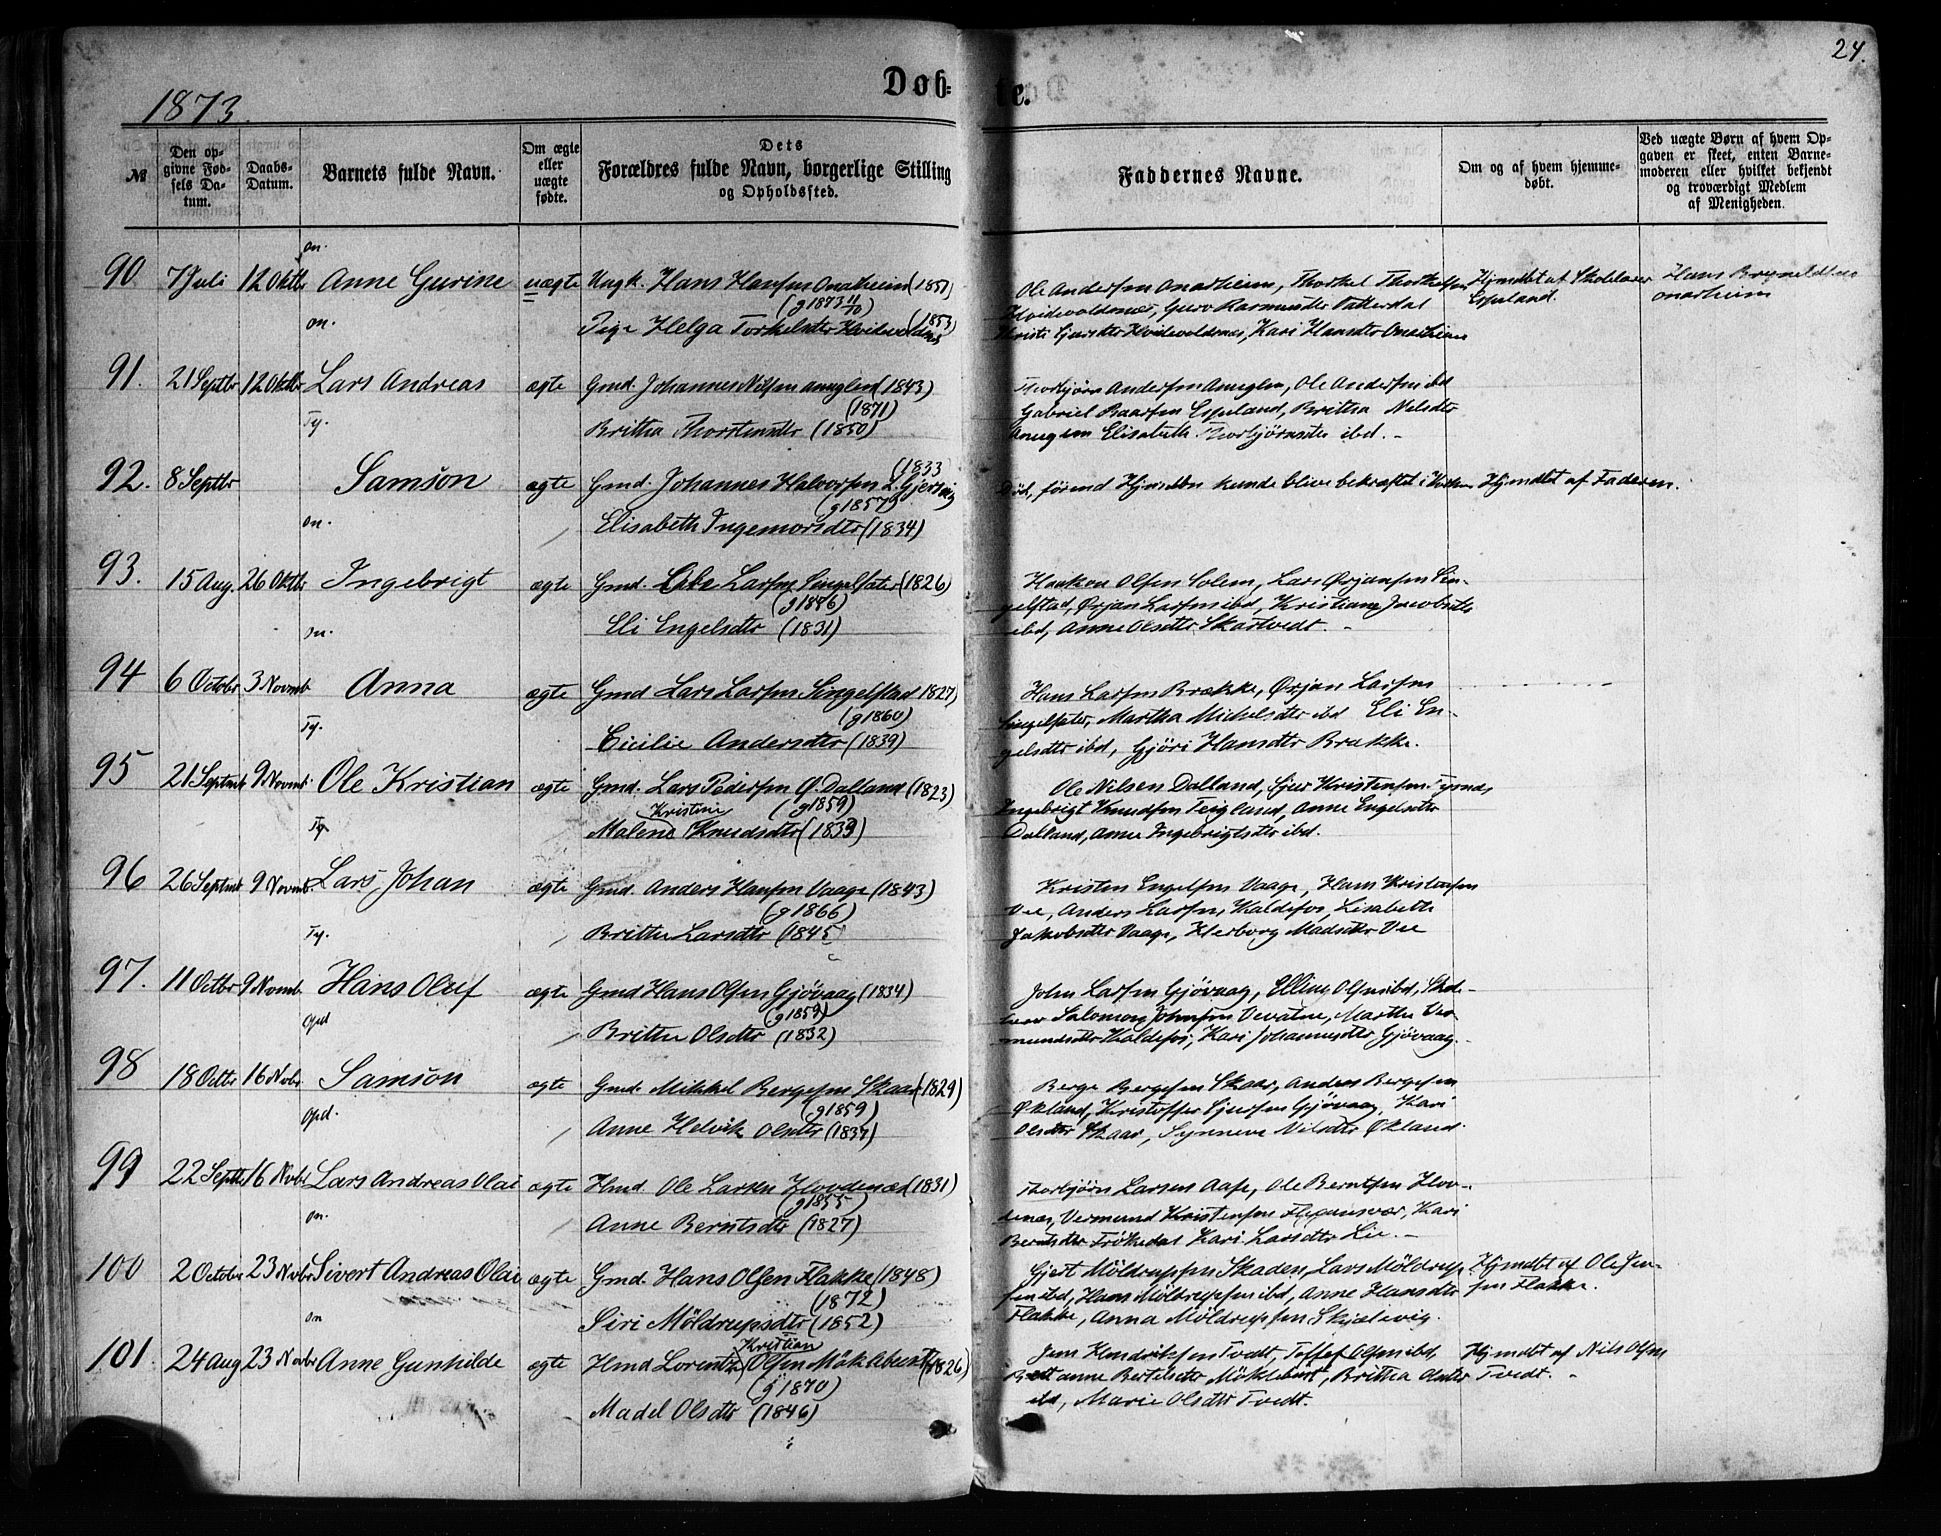 24.
Dob= te.
1873.
№
Den op-
givne Fød-
sels Da-
tum.
Daabs-
Datum.
Barnets fulde Navn.
Om ægte
eller
uægte
fødte.
Dets
Forældres fulde Navn, borgerlige Stilling
og Opholdssted.
Faddernes Navne.
Om og af hvem hjemme-
døbt.
Ved uægte Børn af hvem Op-
gaven er skeet, enten Barne-
moderen eller hvilket bekjendt
og troværdigt Medlem
af Menigheden.
on.
90 7 Juli 12 Oktbr Anne Gurine uægte Ungk. Hans Hansen Onarheim (1851)
(g 1873 11/10)
on.
Pige Helga Torkelsdtr (1853)
Ole Andersen Onarheim, Thorkel Thorkelsen Hjmdbt af Skolelærer Hans Bryneldsen
Hvidevoldsnæs, Guro Rasmusdtr Espeland. Onarheim
Sjursdtr Hvidevoldsnæs, Kari Hansdtr Onarheim
91. 21 Septbr 12 Oktbr Lars Andreas ægte Gmd. Johannes Nilsen Anuglen (1843)
(1871)
Ty.
Britha Thorstensdtr (1850)
Thorbjørn Andersen Anuglen, Ole Andersen ibd
Gabriel Baarsen Espeland, Britha Nilsdtr
Anuglen Elisabeth Thorbjørnsdtr ibd. -
92. 8 Septbr Samson ægte Gmd. Johannes Halvorsen Gjersvig (1833
(g 1857)
on.
Elisabeth Ingemorsdtr (1834)
Død, førend Hjmdbn kunde blive bekræftet i Kirken Hjmdbt af Faderen.
93. 15 Aug. 26 Oktbr Ingebrigt ægte Gmd. Ole Larsen Singelstad (1826)
(g 1846)
on.
Eli Engelsdtr (1831)
Haakon Olsen Solem, Lars Ørjansen Sin-
gelstad, Ørjan Larsen ibd, Kristiane Jacobsdtr
ibd, Anne Olsdtr Skartvedt. -
94 6 Octobr 3 Novmb Anna ægte Gmd Lars Larsen Singelstad 1827)
(g 1860)
Ty.
Cicilie Andersdtr (1839)
Hans Larsen Brække, Ørjan Larsen
Singelstad, Martha Mickelsdtr ibd Eli En-
gelsdtr ibd, Gjøri Hansdtr Brække.
95 21 Septmb 9 Novmb. Ole Kristian ægte Gmd. Lars Pedersen Ø. Dalland (1823)
Kristine (g 1859)
Ty
Malene Knudsdtr (1839)
Ole Nilsen Dalland, Sjur Kristensen Tysnæs
Ingebrigt Knudsen Teigland, Anne Engelsdtr
Dalland, Anne Ingebrigtsdtr ibd.
96 26 Septmb 9 Novmb. Lars Johan ægte Gmd. Anders Hansen Vaage (1843)
(g 1866)
Ty.
Britha Larsdtr (1845
Kristen Engelsen Vaage, Hans Kristensen
Vee, Anders Larsen Kaldefos, Lisabeth
Jakobsdtr Vaage, Herborg Madsdtr Vee
97. 11 Octbr 9 Novmb Hans Oluf ægte Gmd Hans Olsen Gjøvaag (1834)
(g 1859)
Opd
Brithe Olsdtr (1832)
John Larsen Gjøvaag, Elling Olsen ibd, Skole-
lærer Salomon Johnsen Vevatne, Martha Ver-
mundsdtr Kaldefos, Kari Johannesdtr Gjøvaag.
98 18 Octbr 16 Novbr Samson ægte Gmd. Mikkel Bergesen Skaar (1829)
(g 1859)
Opd.
Anne Helvik Olsdtr (1834)
Berge Bergesen Skaar, Anders Bergesen
Økland, Kristoffer Sjursen Gjøvaag, Kari
Olsdtr Skaar, Synneve Nilsdtr Økland.
99 22 Septbr 16 Novbr Lars Andreas Olai ægte Hmd Ole Larsen Hovdenæs (1831)
(g 1855)
on.
Anne Berntsdtr (1827)
Thorbjørn Larsen Aase, Ole Berntsen Hov-
denæs, Vermund Kristensen Flygansvær, Kari
Berntsdtr Frøkedal Kari Larsdtr Lie. -
100 2 October 23 Novbr Sivert Andreas Olai ægte Gmd. Hans Olsen Flakke (1848)
(1872)
on
Siri Möldrupsdtr (1852)
Gjert Möldrupsen Skaden, Lars Möldrup- Hjmdbt af Ole Jen-
sen ibd, Hans Möldrupsen ibd, Anne Hansdtr sen Flakke.
Flakke, Anna Möldrupsen Skjelevig.
101. 24 Aug 23 Novbr Anne Gunhilde ægte Hmd Lorentz Kristian Olsen Möklebust (1826)
(g 1870)
Madel Olsdtr (1846)
Jens Hendriksen Tvedt, Tosten Olsen ibd, Hjmdbt af Nils Olsen
Anne Bertelsdtr Möklebust, Britha Olsdtr Tvedt. -
ibd, Marie Olsdtr Tvedt.